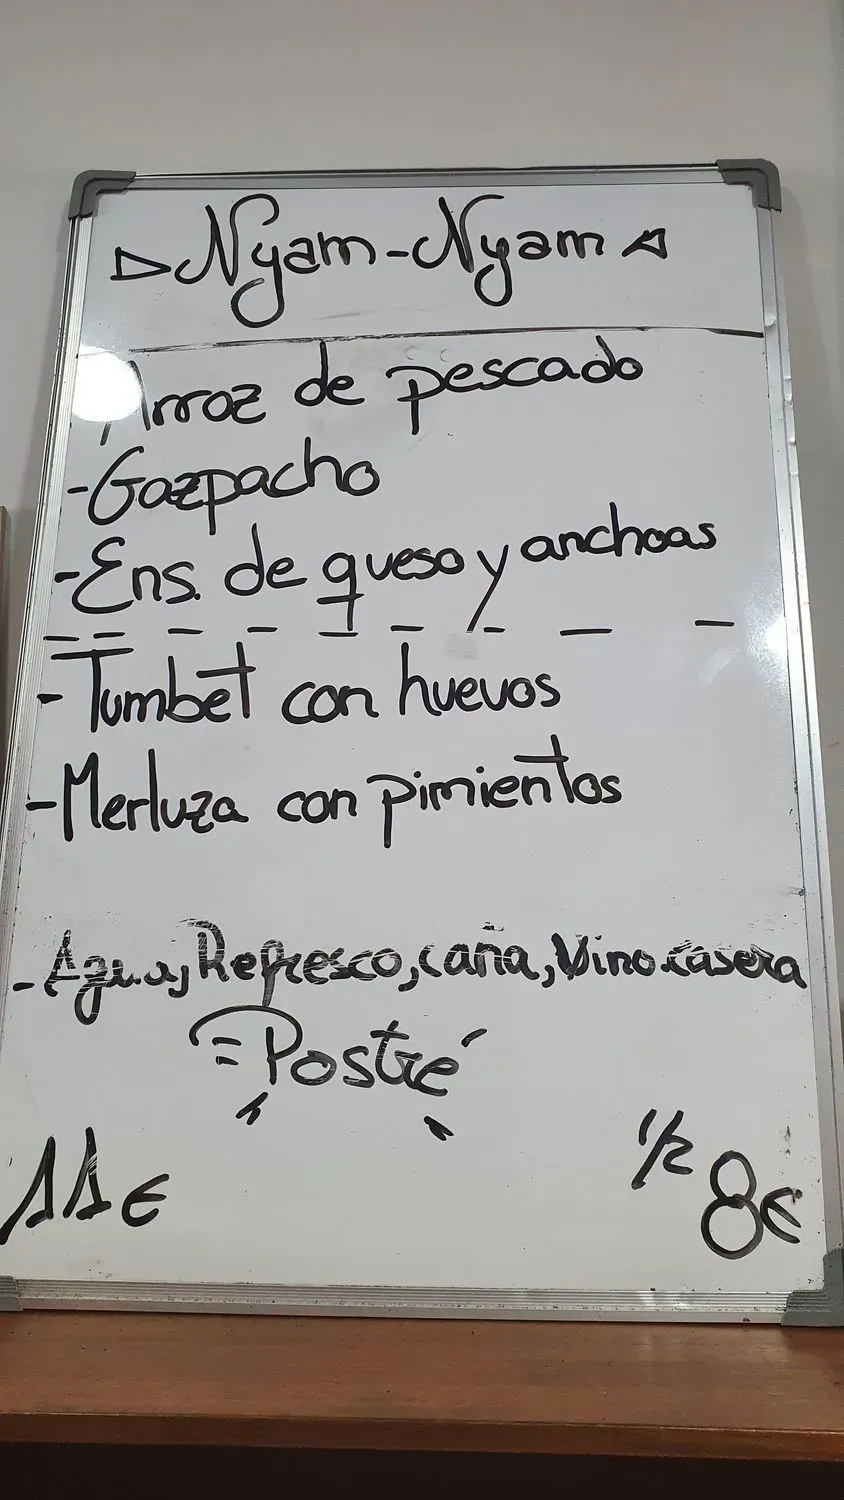 Nyam-Nyam
Arroz de pescado
-Gazpacho
-Ens. de queso y anchoas
-Tumbet con huevos
-Merluza con pimientos
-Agua, Refresco, caña, Vino casera
Postre
11€
1/2 8€